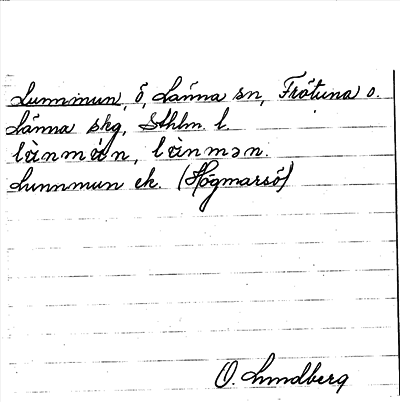 Lunnmun, ö, Länna sn, Frötuna o.
Länna skg, Sthlm. l.
lùnmùn, lùnmən.
Lunnmun ek. (Högmarsö)
O. Lundberg